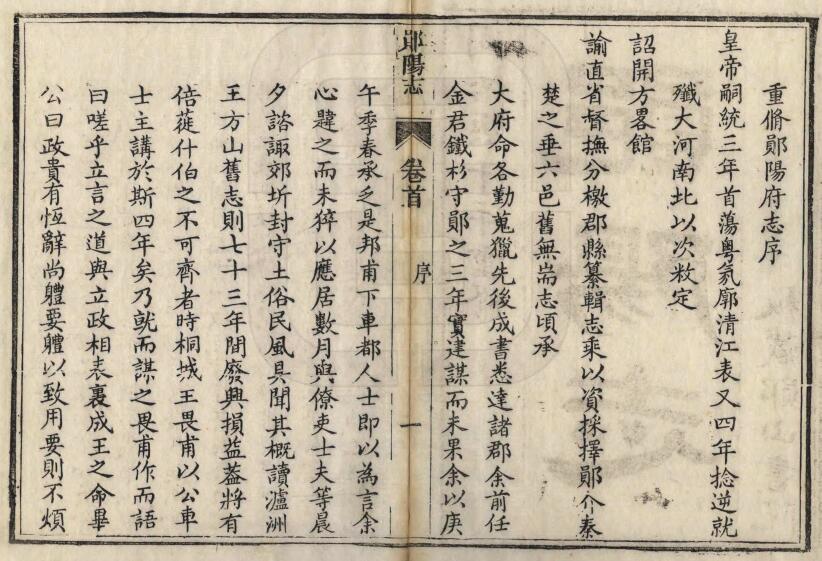 重脩鄖陽府志序
皇帝嗣統三年首蕩粵氛廓清江表又四年捻逆就
殲大河南北以次敉定
詔開方畧館
諭直省督撫分檄郡縣纂輯志乘以資採擇鄖介秦
楚之垂六邑舊無耑志頃承
大府命各勤蒐獵先後成書悉達諸郡余前任
金君鐵杉守鄖之三年實建謀而未果余以庚
鄖陽志
卷首
序
一
午季春承乏是邦甫下車都人士即以為言余
心韙之而未猝以應居數月與僚吏士夫等晨
夕諮諏郊圻封守土俗民風具聞其概讀瀘洲
王方山舊志則七十三年間廢興損益葢將有
倍蓰什伯之不可齊者時桐城王畏甫以公車
士主講於斯四年矣乃就而謀之畏甫作而語
曰嗟乎立言之道與立政相表裏成王之命畢
公曰政貴有恆辭尚體要體以致用要則不煩